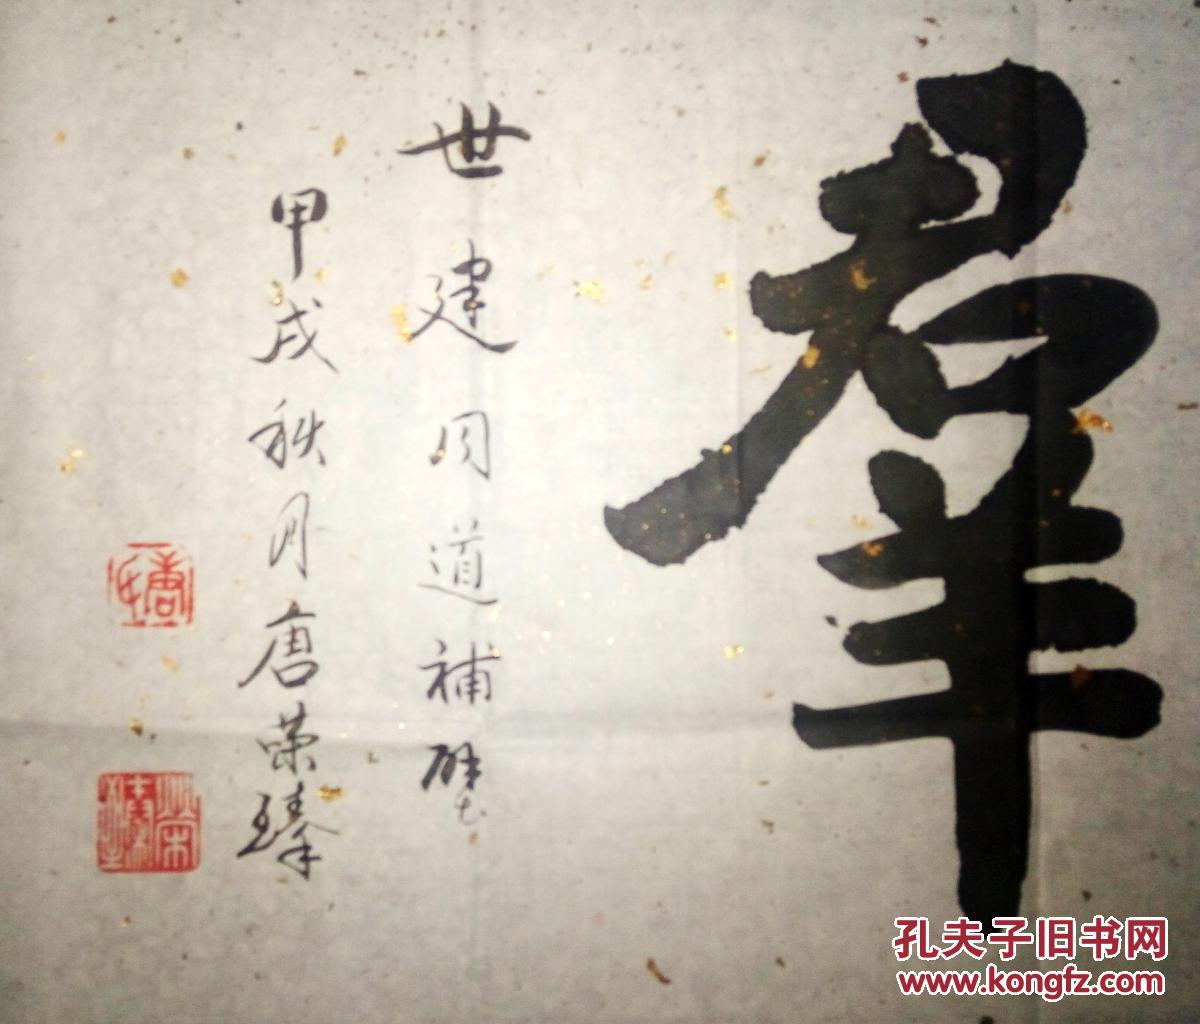 羣
世建同道補壁
甲戌秋月唐荣臻
孔夫子旧书网
www.kongfz.com